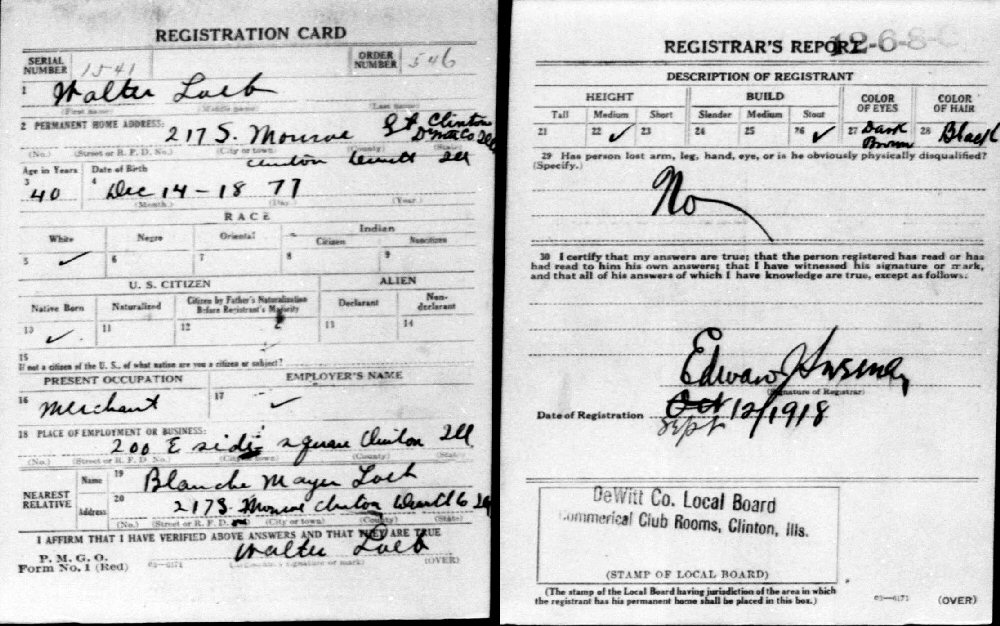 REGISTRATION CARD
SERIAL NUMBER 1541 ORDER NUMBER 546
1 Walter Loeb
(First name) (Middle name) (Last name)
2 PERMANENT HOME ADDRESS:
217 S. Monroe St Clinton DeWitt Co Ill
(No.) (Street or R. F. D. No.) (City or town) (County) (State)
Clinton Dewitt Ill
Age in Years Date of Birth
3 40 4 Dec 14 - 18 77
(Month.) (Day.) (Year.)
RACE
White Negro Oriental Indian
Citizen Noncitizen
5 ✓ 6 7 8 9
U. S. CITIZEN ALIEN
Native Born Naturalized Citizen by Father's Naturalization Before Registrant's Majority Declarant Non-declarant
10 ✓ 11 12 13 14
15
If not a citizen of the U. S., of what nation are you a citizen or subject?
PRESENT OCCUPATION EMPLOYER'S NAME
16 Merchant 17 ✓
18 PLACE OF EMPLOYMENT OR BUSINESS:
200 E side square Clinton Ill
(No.) (Street or R. F. D. No.) (City or town) (County) (State)
NEAREST RELATIVE Name 19 Blanche Mayer Loeb
Address 20 217 S. Monroe Clinton Dewitt Co Ill
(No.) (Street or R. F. D. No.) (City or town) (County) (State)
I AFFIRM THAT I HAVE VERIFIED ABOVE ANSWERS AND THAT THEY ARE TRUE
P. M. G. O.
Form No. 1 (Red) 03—6171 Walter Loeb
(Registrant's signature or mark) (OVER)
REGISTRAR'S REPORT 12-6-8-C
DESCRIPTION OF REGISTRANT
HEIGHT BUILD COLOR OF EYES COLOR OF HAIR
Tall Medium Short Slender Medium Stout
21 22 ✓ 23 24 25 26 ✓ 27 Dark Brown 28 Black
29 Has person lost arm, leg, hand, eye, or is he obviously physically disqualified?
(Specify.)
No
30 I certify that my answers are true; that the person registered has read or has
had read to him his own answers; that I have witnessed his signature or mark,
and that all of his answers of which I have knowledge are true, except as follows:
Edward J
(Signature of Registrar)
Date of Registration Oct 12/1918
Sept
DeWitt Co. Local Board
Commerical Club Rooms, Clinton, Ills.
(STAMP OF LOCAL BOARD)
(The stamp of the Local Board having jurisdiction of the area in which
the registrant has his permanent home shall be placed in this box.)
03—6171 (OVER)